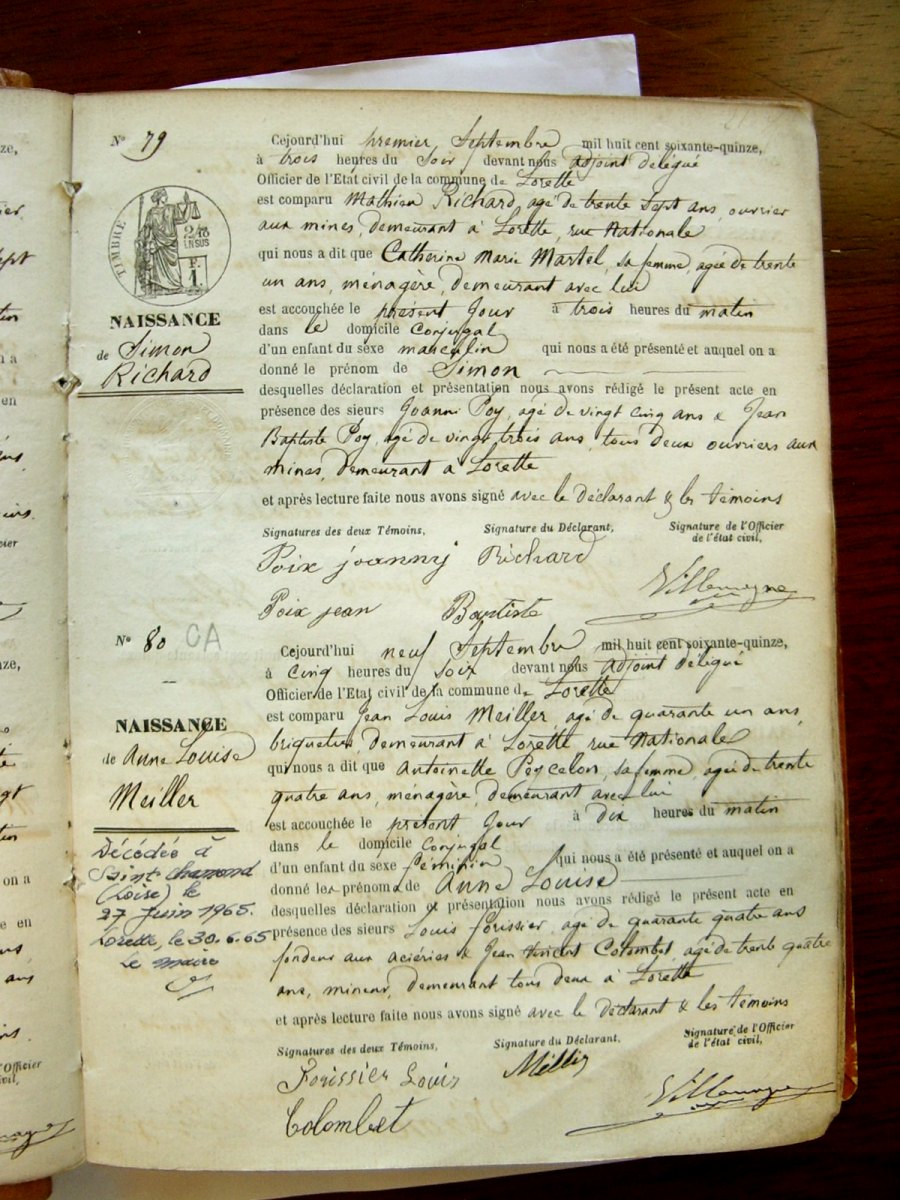 N° 79
TIMBRE
2/10
EN SUS
F.
1
NAISSANCE
de Simon
Richard
Cejourd'hui premier Septembre mil huit cent soixante-quinze,
à trois heures du Soir devant nous adjoint délégué
Officier de l'Etat civil de la commune de Lorette
est comparu Mathieu Richard, agé de trente sept ans, ouvrier
aux mines, demeurant à Lorette, rue Nationale
qui nous a dit que Catherine Marie Martel, sa femme, agée de trente
un ans, ménagère, demeurant avec lui
est accouchée le présent Jour à trois heures du matin
dans le domicile Conjugal
d'un enfant du sexe masculin qui nous a été présenté et auquel on a
donné le prénom de Simon
desquelles déclaration et présentation nous avons rédigé le présent acte en
présence des sieurs Joanni Poy, agé de vingt cinq ans & Jean
Baptiste Poy, agé de vingt trois ans, tous deux ouvriers aux
mines, demeurant à Lorette
et après lecture faite nous avons signé avec le déclarant & les témoins
Signatures des deux Témoins, Signature du Déclarant, Signature de l'Officier
de l'état civil,
Poix joanny Richard
Villemagne
Poix jean Baptiste
N° 80 CA
NAISSANCE
de Anne Louise
Meiller
Décédée à
Saint Chamond
(Loire) le
27 Juin 1965.
Lorette, le 30.6.65
Le maire
Cejourd'hui neuf Septembre mil huit cent soixante-quinze,
à Cinq heures du Soir devant nous adjoint délégué
Officier de l'Etat civil de la commune de Lorette
est comparu Jean Louis Meiller, agé de quarante un ans,
briquetier, demeurant à Lorette, rue Nationale
qui nous a dit que Antoinette Peycelon, sa femme, agée de trente
quatre ans, ménagère, demeurant avec lui
est accouchée le présent Jour à dix heures du matin
dans le domicile Conjugal
d'un enfant du sexe féminin qui nous a été présenté et auquel on a
donné les prénoms de Anne Louise
desquelles déclaration et présentation nous avons rédigé le présent acte en
présence des sieurs Louis Forissier, agé de quarante quatre ans
fondeur aux aciéries & Jean Vincent Colombet, agé de trente quatre
ans, mineur, demeurant tous deux à Lorette
et après lecture faite nous avons signé avec le déclarant & les témoins
Signatures des deux Témoins, Signature du Déclarant, Signature de l'Officier
de l'état civil,
Forissier Louis Méllier
Villemagne
Colombet